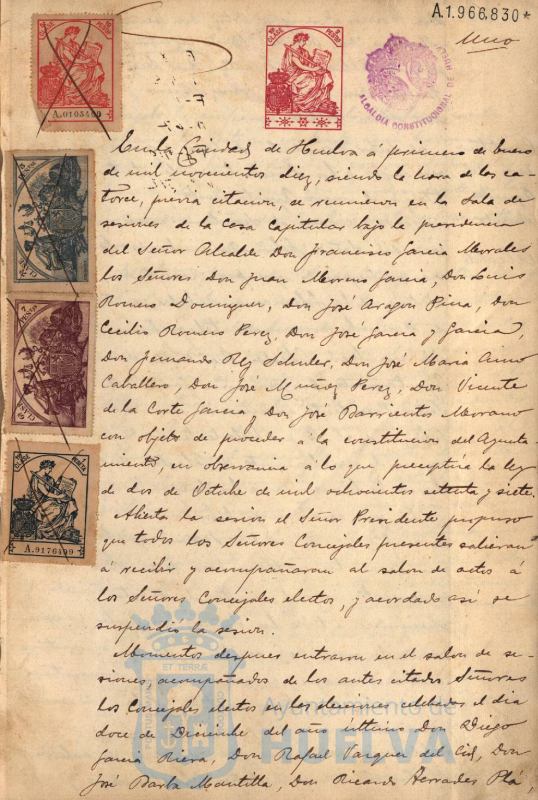 A.1.966.830*
Uno
ALCALDIA CONSTITUCIONAL DE HUELVA
A.0105409
A.9176499
En la Ciudad de Huelva á primero de Enero
de mil novecientos diez, siendo la hora de las ca-
torce, previa citacion, se reunieron en la Sala de
sesiones de la Casa Capitular bajo la presidencia
del Señor Alcalde Don Francisco Garcia Morales
los Señores Don Juan Moreno Garcia, Don Luis
Romero Dominguez, Don José Aragon Pina, Don
Cecilio Romero Perez, Don José Garcia y Garcia,
Don Fernando Rey Schuler, Don José Maria Amo
Caballero, Don José Muñoz Perez, Don Vicente
de la Corte Garcia y Don José Barrientos Morano
con objeto de proceder á la constitucion del Ayunta-
miento, en observancia á lo que preceptúa la ley
de dos de Octubre de mil ochocientos setenta y siete.
Abierta la sesion el Señor Presidente propuso
que todos los Señores Concejales presentes salieran
á recibir y acompañaran al salon de actos á
los Señores Concejales electos, y acordado así se
suspendio la sesion.
Momentos despues entraron en el salon de se-
siones, acompañados de los antes citados Señores
los Concejales electos en las elecciones celebradas el dia
doce de Diciembre del año último Don Diego
Garcia Riera, Don Rafael Vazquez del Cid, Don
José Barba Mantilla, Don Ricardo Terrades Plá,
ET TERRÆ
Ayuntamiento de
HUELVA